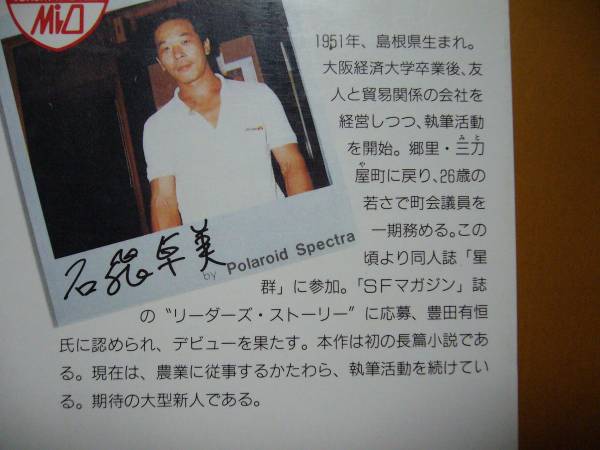 MiO
1951年、島根県生まれ。
大阪経済大学卒業後、友
人と貿易関係の会社を
経営しつつ、執筆活動
を開始。郷里・三刀
みと
屋町に戻り、26歳の
や
若さで町会議員を
一期務める。この
頃より同人誌「星
群」に参加。「SFマガジン」誌
の“リーダーズ・ストーリー”に応募、豊田有恒
氏に認められ、デビューを果たす。本作は初の長篇小説であ
る。現在は、農業に従事するかたわら、執筆活動を続けてい
る。期待の大型新人である。
石飛卓美
by Polaroid Spectra